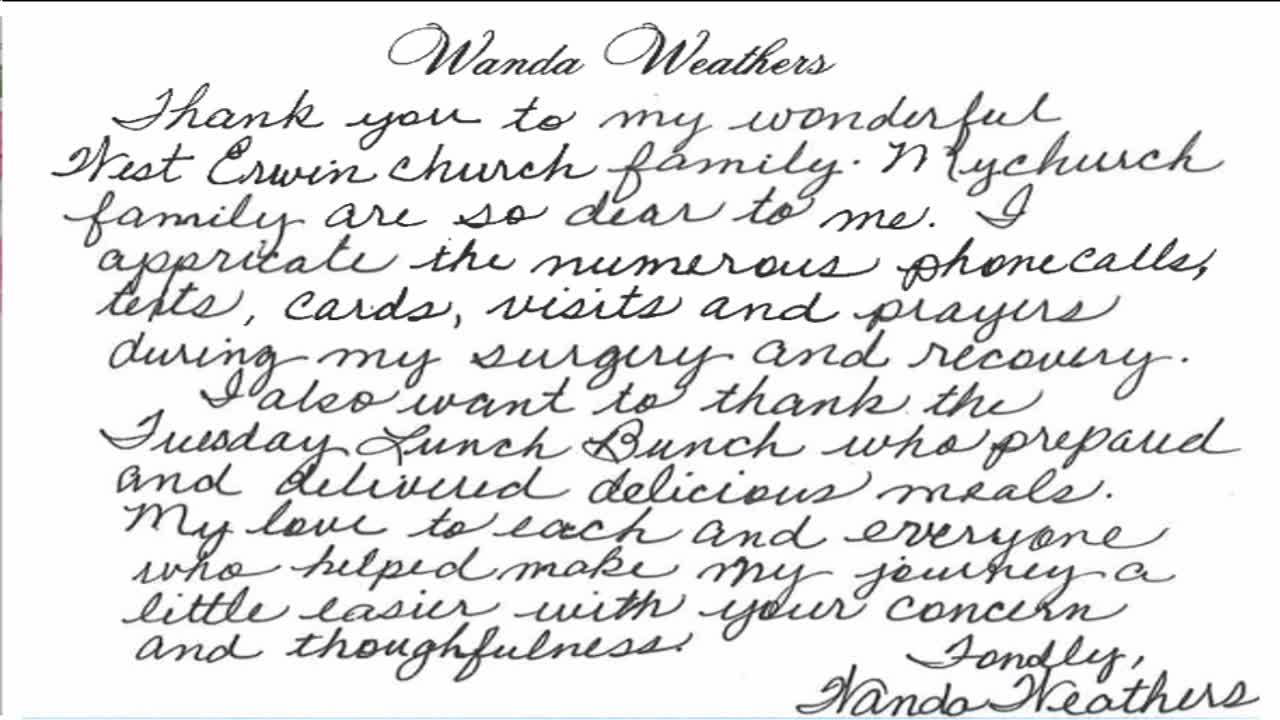 Wanda Weathers
Thank you to my wonderful
West Erwin church family. My church
family are so dear to me. I
appricate the numerous phone calls,
texts, cards, visits and prayers
during my surgery and recovery.
I also want to thank the
Tuesday Lunch Bunch who prepared
and delivered delicious meals.
My love to each and everyone
who helped make my journey a
little easier with your concern
and thoughfulness.
Fondly,
Wanda Weathers